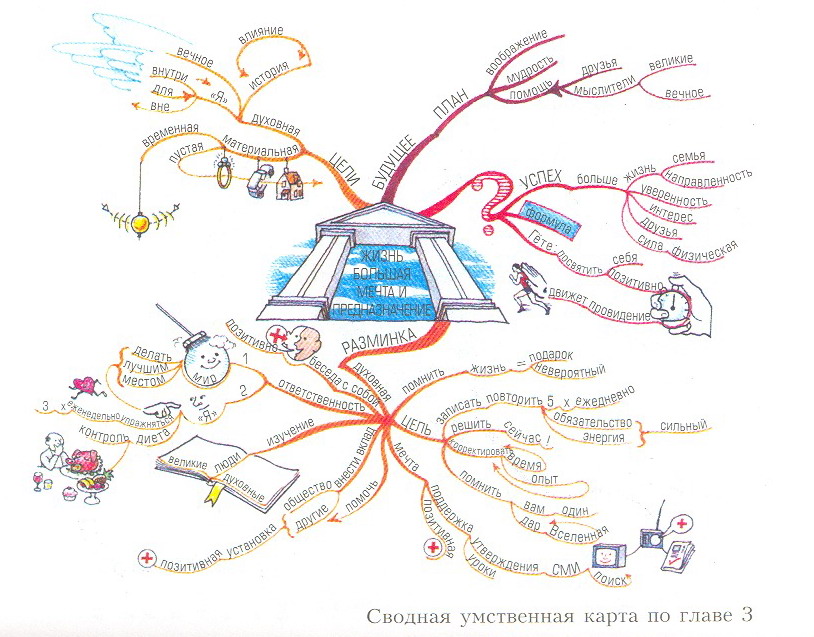 влияние
история
вечное
внутри
для
вне
«Я»
духовная
временная
пустая
материальная
ЦЕЛИ
БУДУЩЕЕ
ПЛАН
воображение
мудрость
помощь
друзья
мыслители
великие
вечное
УСПЕХ
больше
жизнь
семья
направленность
уверенность
интерес
друзья
сила физическая
формула
Гёте:
посвятить
себя
позитивно
движет провидение
ЖИЗНЬ
БОЛЬШАЯ
МЕЧТА И
ПРЕДНАЗНАЧЕНИЕ
РАЗМИНКА
духовная
позитивно
беседа с собой
ответственность
1
мир
делать
лучшим
местом
2
«Я»
3 х еженедельно упражняться
контроль диета
изучение
великие люди
духовные
внести вклад
общество
другие
помочь
позитивная установка
ЦЕЛЬ
помнить
жизнь = подарок
невероятный
записать повторить 5 х ежедневно
обязательство
энергия
сильный
решить
сейчас !
корректировать
время
опыт
помнить
вам один
дар Вселенная
мечта
поддержка
позитивная
утверждения
уроки
СМИ
поиск
Сводная умственная карта по главе 3